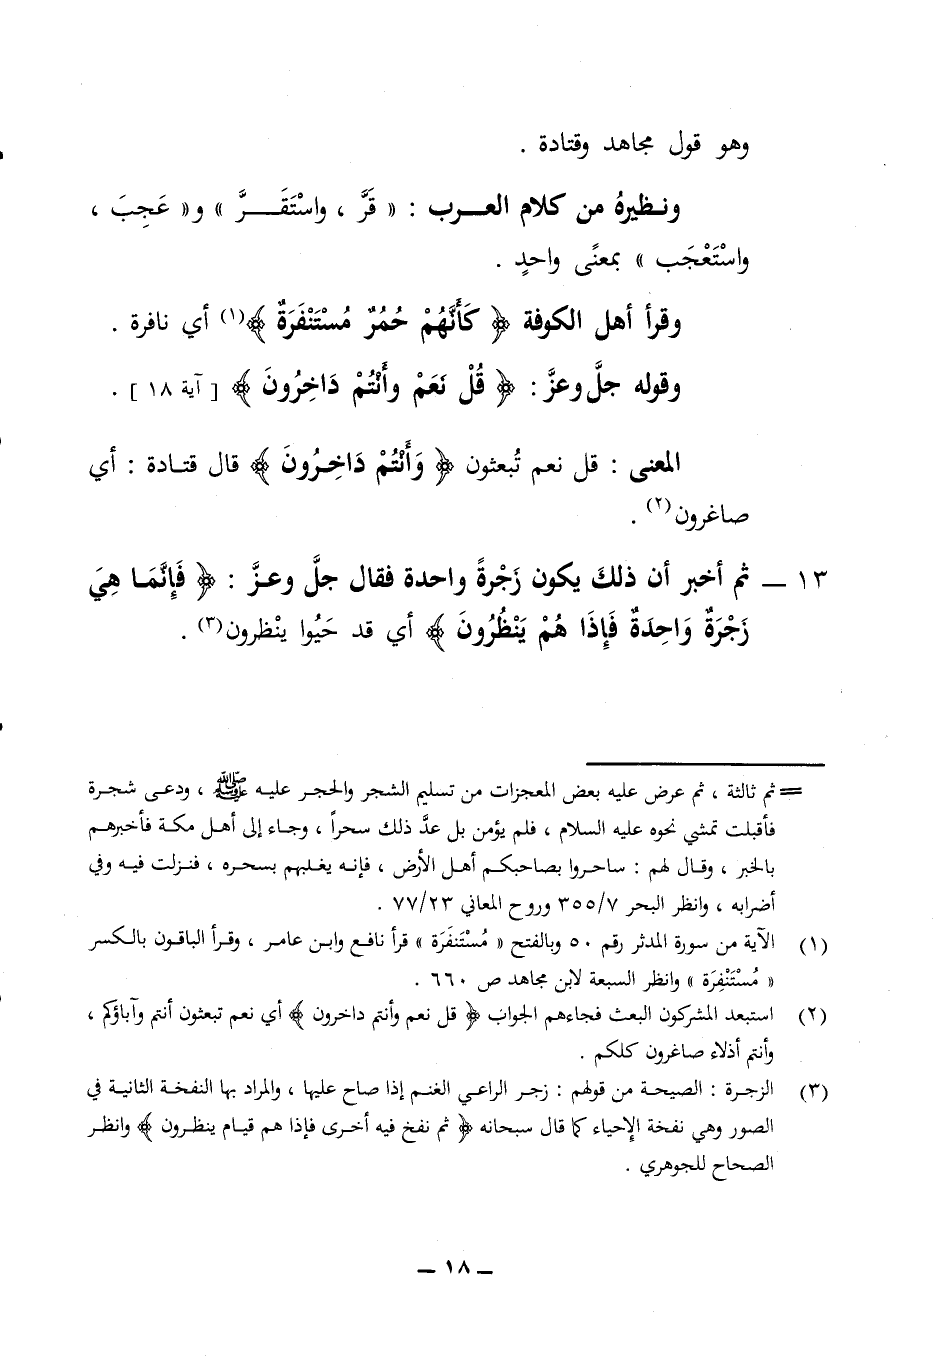 وهو قول مجاهد وقتادة .
ونظيرهُ من كلام العرب : « قَرَّ ، واسْتَقَرَّ » و« عَجِبَ ،
واسْتَعْجَب » بمعنًى واحدٍ .
وقرأ أهل الكوفة ﴿ كَأَنَّهُمْ حُمُرٌ مُسْتَنْفَرَةٌ ﴾(١) أي نافرة .
وقوله جلَّ وعزَّ : ﴿ قُلْ نَعَمْ وأَنْتُمْ دَاخِرُونَ ﴾ [ آية ١٨ ] .
المعنى : قل نعم تُبعثون ﴿ وَأَنْتُمْ دَاخِرُونَ ﴾ قال قتادة : أي
صاغرون(٢) .
١٣ — ثم أخبر أن ذلك يكون زَجْرةً واحدة فقال جلَّ وعزَّ : ﴿ فَإِنَّمَا هِيَ
زَجْرَةٌ وَاحِدَةٌ فَإِذَا هُمْ يَنْظُرُونَ ﴾ أي قد حَيُوا ينْظرون(٣) .
= ثم ثالثة ، ثم عرض عليه بعض المعجزات من تسليم الشجر والحجر عليه ﷺ ، ودعى شجرة
فأقبلت تمشي نحوه عليه السلام ، فلم يؤمن بل عدَّ ذلك سحراً ، وجاء إلى أهل مكة فأخبرهم
بالخبر ، وقال لهم : ساحروا بصاحبكم أهل الأرض ، فإنه يغلبهم بسحره ، فنزلت فيه وفي
أضرابه ، وانظر البحر ٣٥٥/٧ وروح المعاني ٧٧/٢٣ .
(١) الآية من سورة المدثر رقم ٥٠ وبالفتح « مُسْتَنفَرَة » قرأ نافع وابن عامر ، وقرأ الباقون بالكسر
« مُسْتَنْفِرَة » وانظر السبعة لابن مجاهد ص ٦٦٠ .
(٢) استبعد المشركون البعث فجاءهم الجواب ﴿ قل نعم وأنتم داخرون ﴾ أي نعم تبعثون أنتم وآباؤكم ،
وأنتم أذلاء صاغرون كلكم .
(٣) الزجرة : الصيحة من قولهم : زجر الراعي الغنم إذا صاح عليها ، والمراد بها النفخة الثانية في
الصور وهي نفخة الإحياء كما قال سبحانه ﴿ ثم نفخ فيه أخرى فإذا هم قيام ينظرون ﴾ وانظر
الصحاح للجوهري .
— ١٨ —